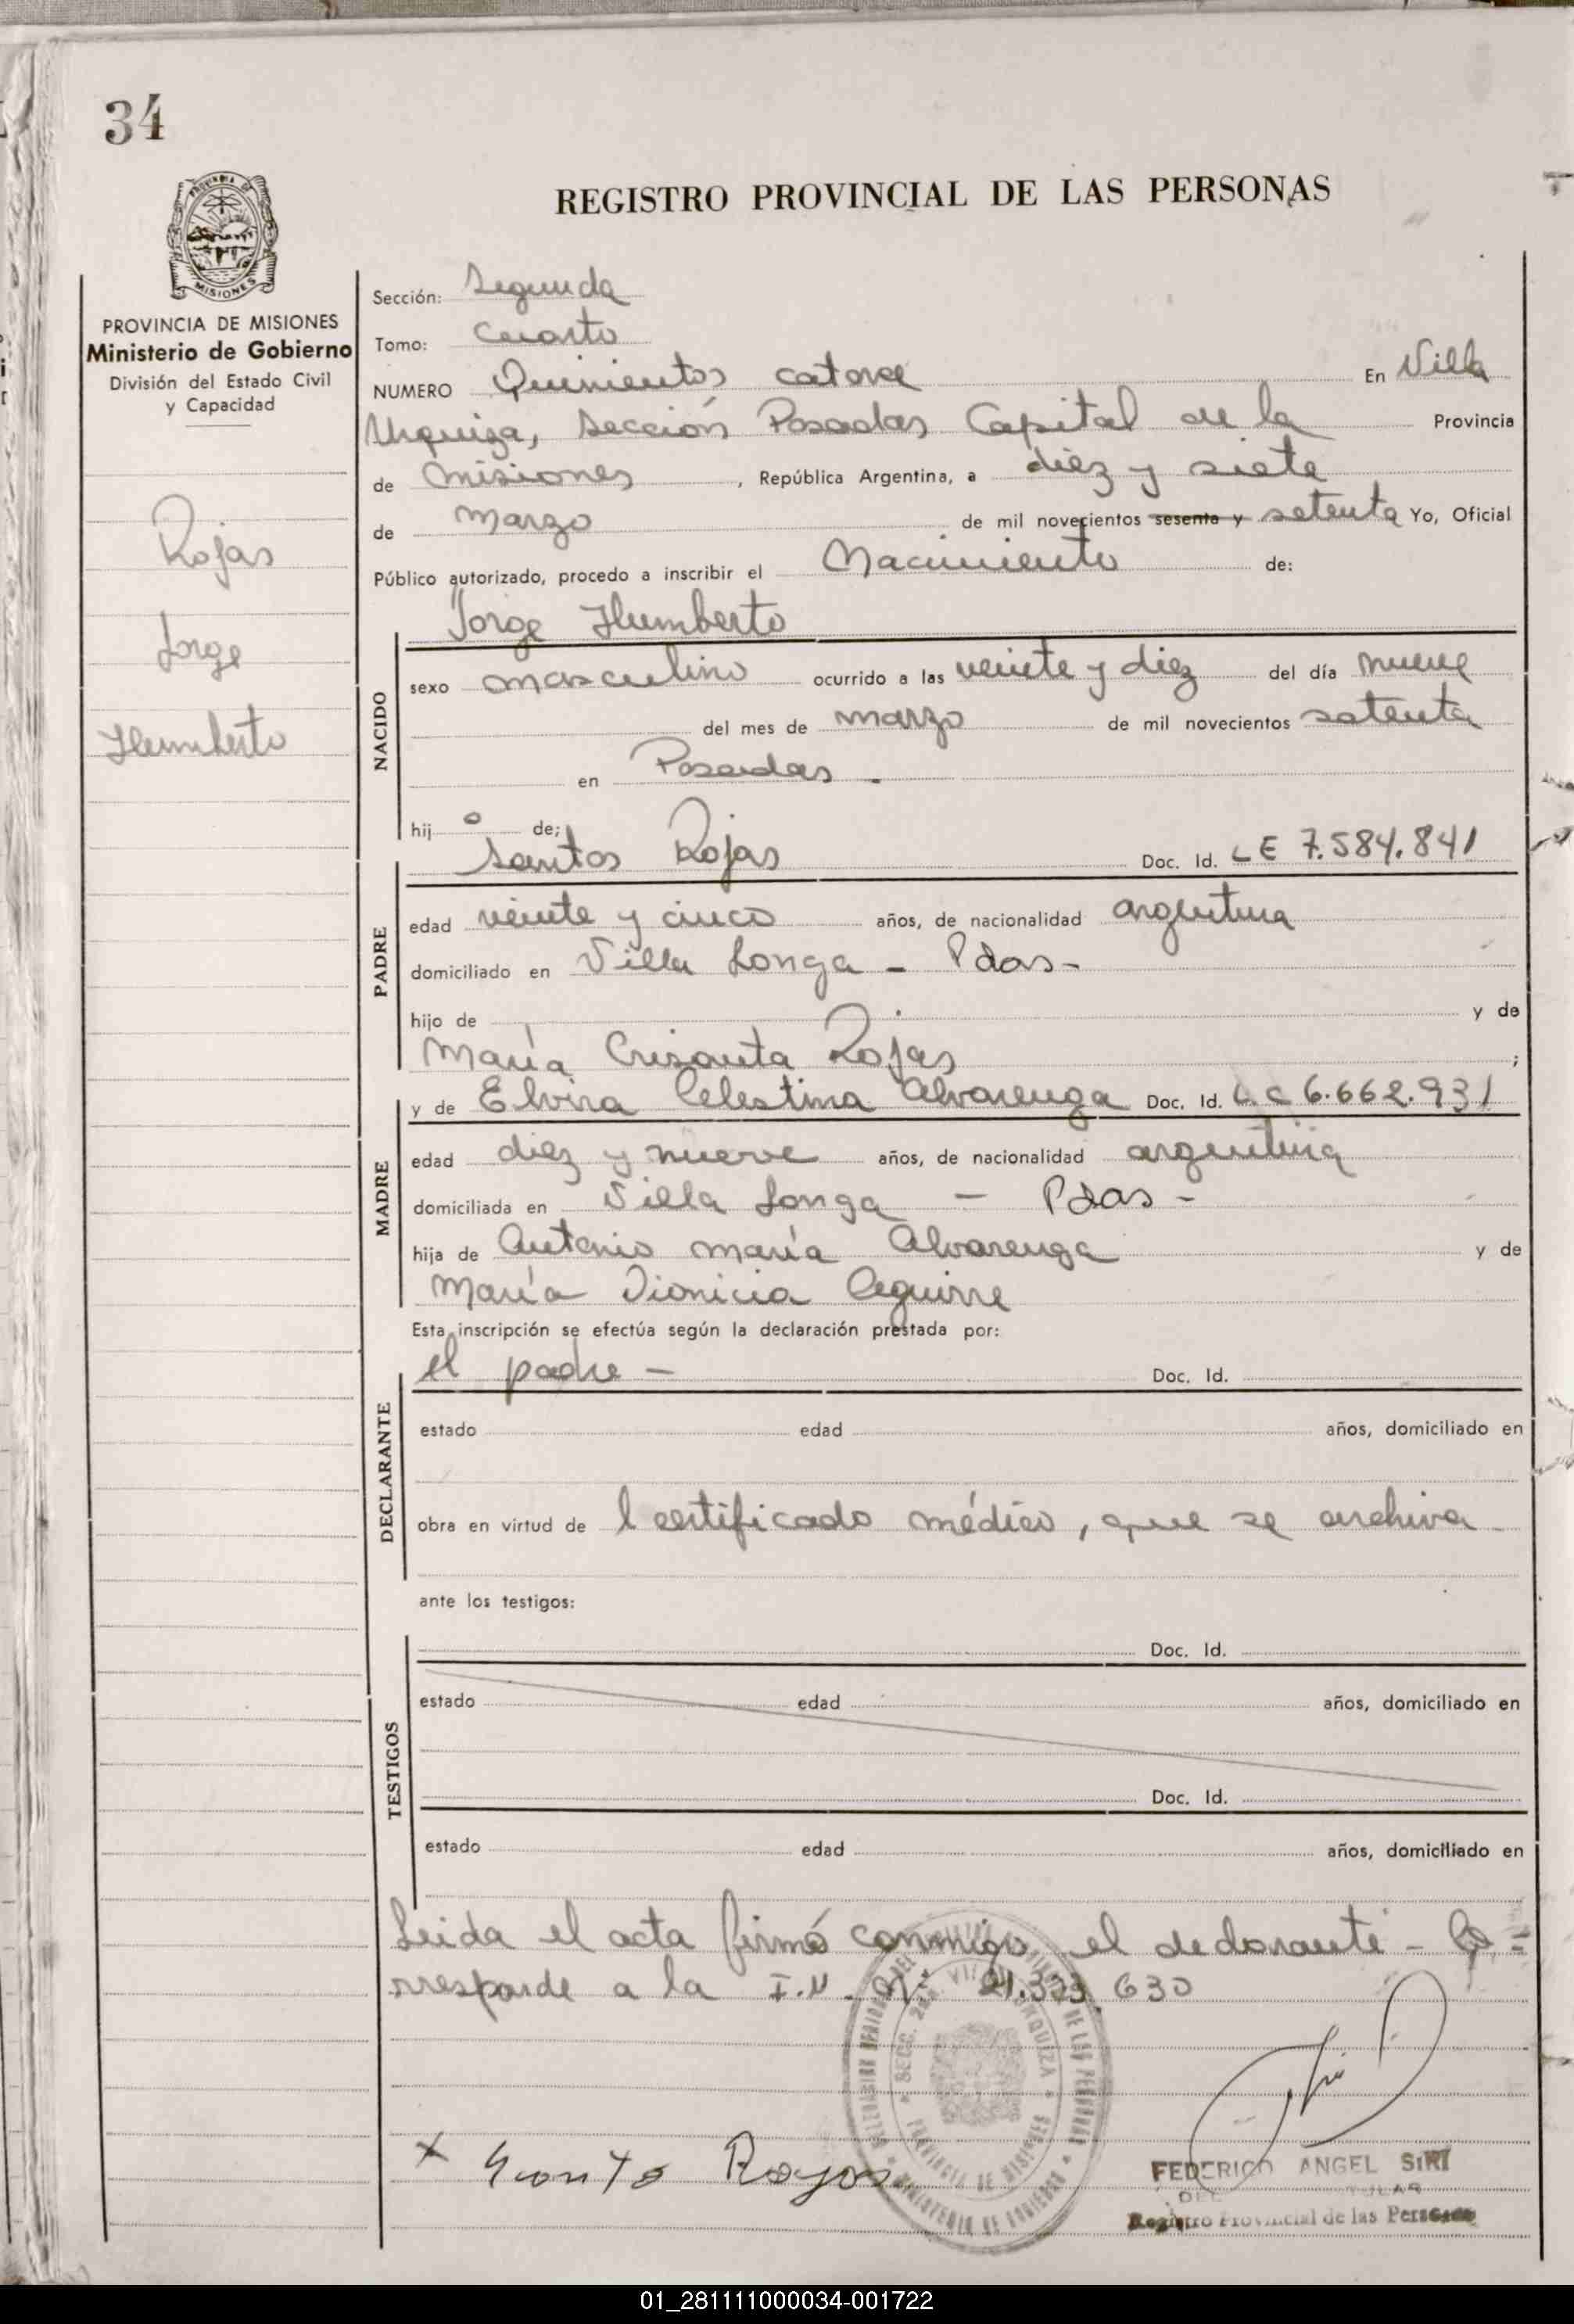 34
REGISTRO PROVINCIAL DE LAS PERSONAS
PROVINCIA DE MISIONES
Ministerio de Gobierno
División del Estado Civil
y Capacidad
Rojas
Jorge
Humberto
Sección: Segunda
Tomo: Cuarto
NUMERO Quinientos catorce En Villa
Urquiza, Sección Posadas Capital de la Provincia
de Misiones, República Argentina, a diez y siete
de Marzo de mil novecientos sesenta y setenta Yo, Oficial
Público autorizado, procedo a inscribir el Nacimiento de:
Jorge Humberto
NACIDO
sexo masculino ocurrido a las veinte y diez del día nueve
del mes de marzo de mil novecientos setenta
en Posadas.
hijo de;
Santos Rojas Doc. Id. LE 7.584.841
PADRE
edad veinte y cinco años, de nacionalidad argentina
domiciliado en Villa Longa - Pdas-
hijo de y de
María Crisanta Rojas ;
y de Elvira Celestina Alvarenga Doc. Id. L C 6.662.931
MADRE
edad diez y nueve años, de nacionalidad argentina
domiciliada en Villa Longa - Pdas -
hija de Antonio maría Alvarenga y de
María Dionicia Aguirre
Esta inscripción se efectúa según la declaración prestada por:
el padre - Doc. Id.
DECLARANTE
estado edad años, domiciliado en
obra en virtud de l certificado médico, que se archiva
ante los testigos:
Doc. Id.
TESTIGOS
estado edad años, domiciliado en
Doc. Id.
estado edad años, domiciliado en
Leida el acta firmó conmigo el declarante - Co=
rresponde a la I.N. N° 21.323.630
SECC. 2da. VILLA URQUIZA
PROVINCIA DE MISIONES
MINISTERIO DE GOBIERNO
DE LAS PERSONAS
x Santo Rojas
FEDERICO ANGEL SIRI
Registro Provincial de las Personas
01_281111000034-001722